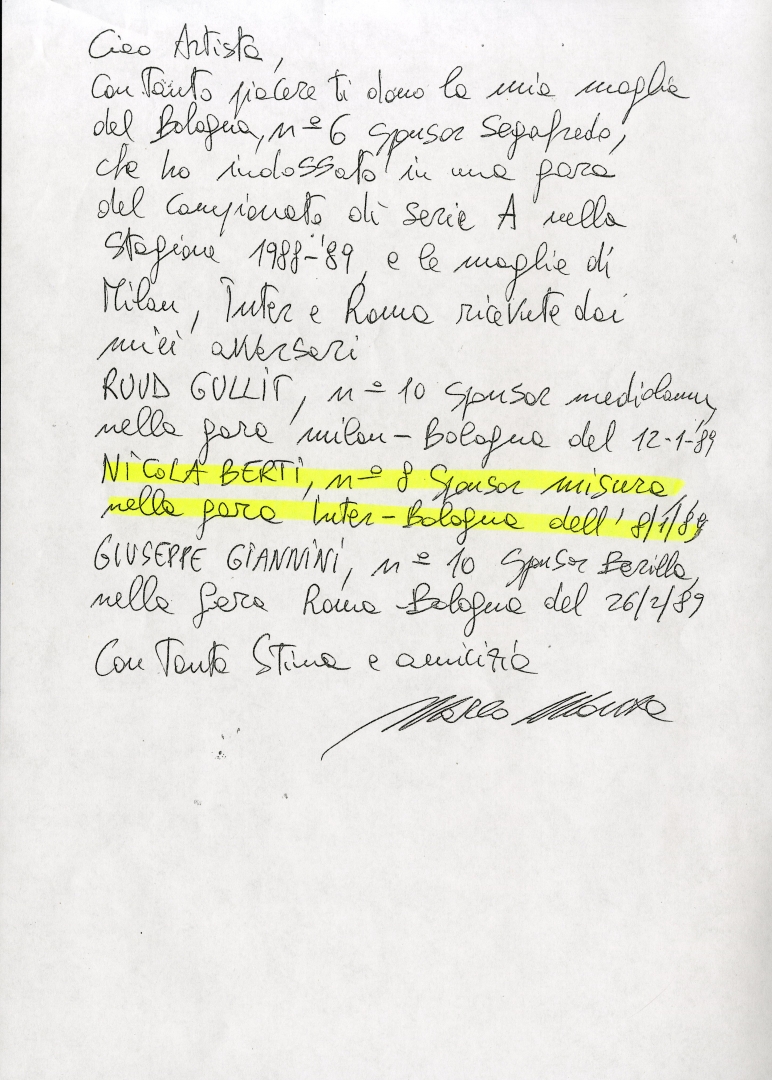 Ciao Artista,
Con Tanto piacere ti dono la mia maglia
del Bologna, nº 6 sponsor Segafredo,
che ho indossato in una gara
del Campionato di serie A nella
Stagione 1988-'89, e le maglie di
Milan, Inter e Roma ricevute dai
miei avversari
RUUD GULLIT, nº 10 sponsor mediolanum,
nella gara milan-Bologna del 12-1-89
NICOLA BERTI, nº 8 sponsor misura,
nella gara Inter-Bologna dell' 8/1/89
GIUSEPPE GIANNINI, nº 10 sponsor Barilla,
nella gara Roma-Bologna del 26/2/89
Con Tanta Stima e amicizia
Marco